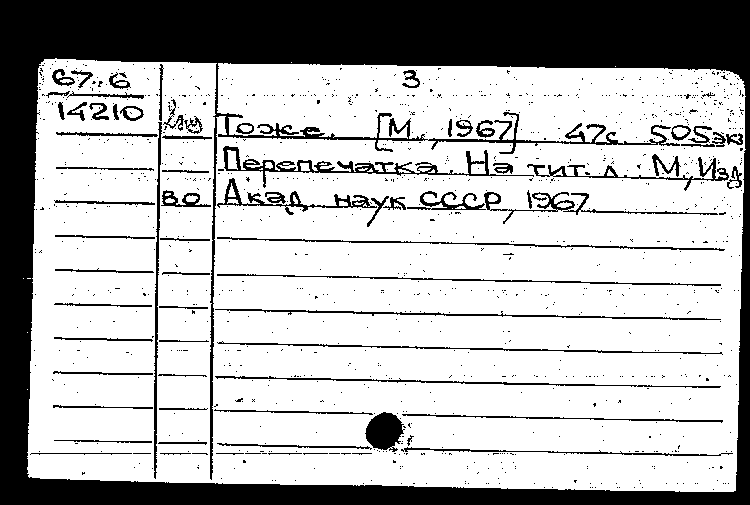 67.6 3
14210
Тоже. [М., 1967]. 47с. 505экз
Перепечатка. На тит. л.: М, Изд
ВО Акад. наук СССР, 1967.